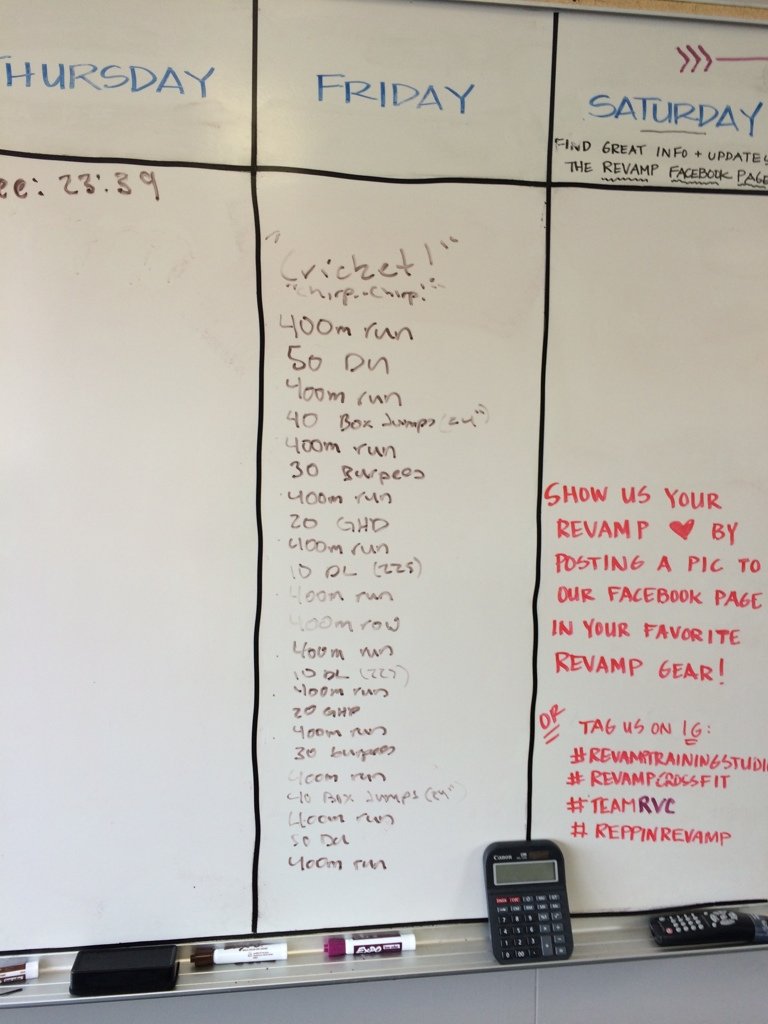 THURSDAY
ee: 23:39
FRIDAY
"Cricket!"
"Chirp..Chirp!"
400m run
50 DU
400m run
40 Box Jumps (24")
400m run
30 Burpees
400m run
20 GHD
400m run
10 DL (225)
400m run
400m row
400m run
10 DL (225)
400m run
20 GHD
400m run
30 burpees
400m run
40 Box Jumps (24")
400m run
50 DU
400m run
SATURDAY
FIND GREAT INFO + UPDATES
THE REVAMP FACEBOOK PAGE
SHOW US YOUR
REVAMP ♥ BY
POSTING A PIC TO
OUR FACEBOOK PAGE
IN YOUR FAVORITE
REVAMP GEAR!
OR TAG US ON IG:
#REVAMPTRAININGSTUDI
# REVAMPCROSSFIT
#TEAMRVC
# REPPINREVAMP
Canon
EXPO